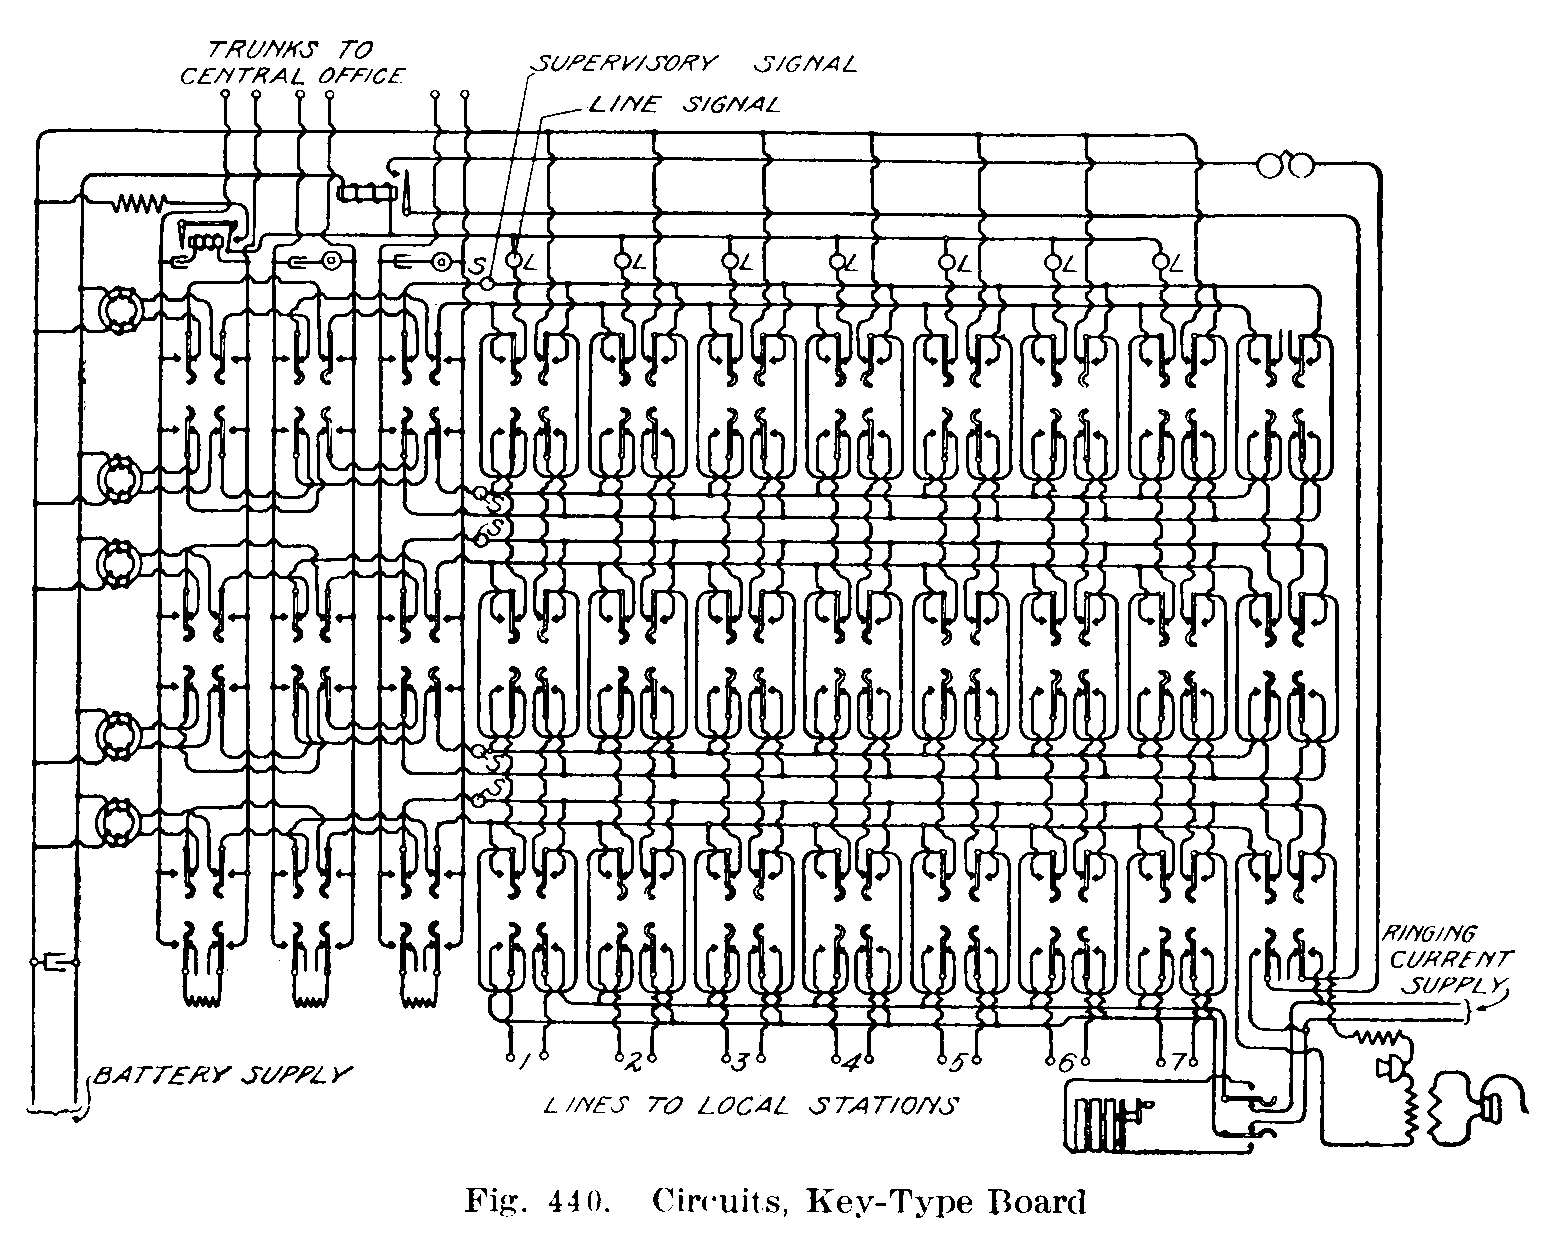 TRUNKS TO
CENTRAL OFFICE
SUPERVISORY SIGNAL
LINE SIGNAL
S
L L L L L L L
S
S
S
S
RINGING
CURRENT
SUPPLY
1 2 3 4 5 6 7
BATTERY SUPPLY
LINES TO LOCAL STATIONS
Fig. 440. Circuits, Key-Type Board